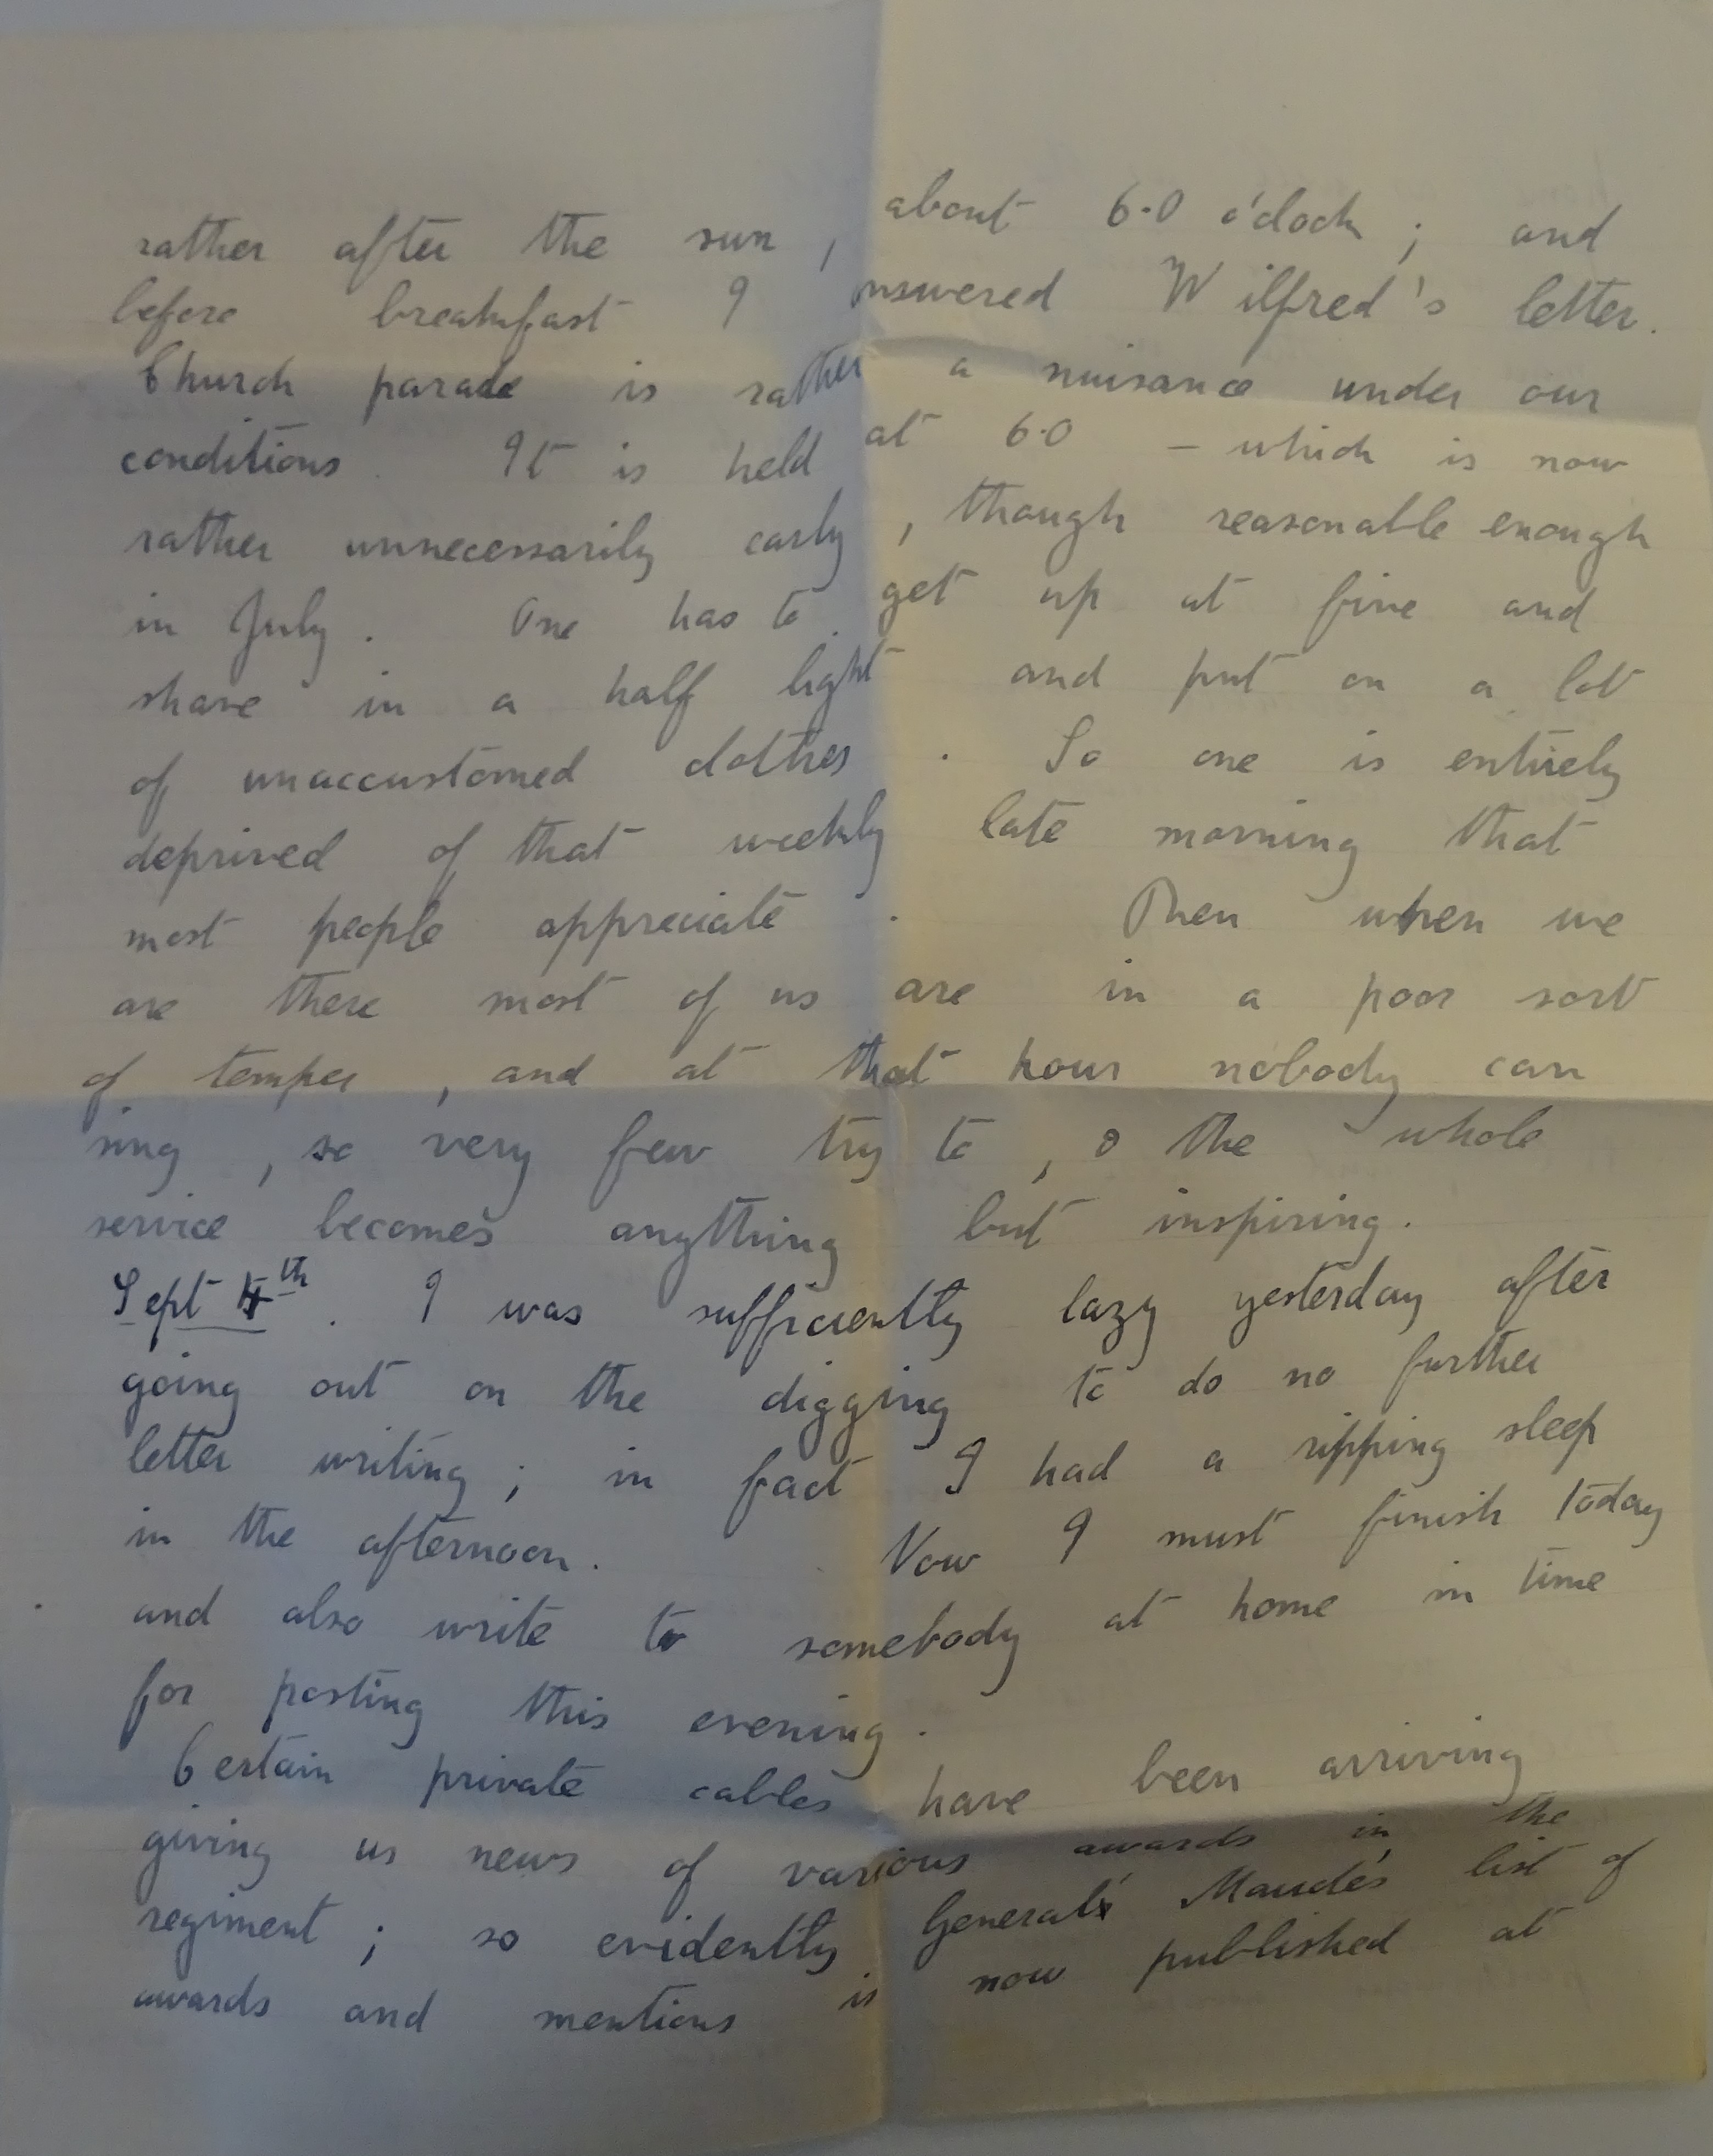 rather after the sun, about 6.0 o'clock; and
before breakfast I answered Wilfred's letter.
Church parade is rather a nuisance under our
conditions. It is held at 6.0 – which is now
rather unnecessarily early, though reasonable enough
in July. One has to get up at five and
shave in a half light and put on a lot
of unaccustomed clothes. So one is entirely
deprived of that weekly late morning that
most people appreciate. Then when we
are there most of us are in a poor sort
of temper, and at that hour nobody can
sing, so very few try to, & the whole
service becomes anything but inspiring.
Sept 4th. I was sufficiently lazy yesterday after
going out on the digging to do no further
letter writing; in fact I had a ripping sleep
in the afternoon. Now I must finish today
and also write to somebody at home in time
for posting this evening.
Certain private cables have been arriving
giving us news of various awards in the
regiment; so evidently General Maude's list of
awards and mentions is now published at